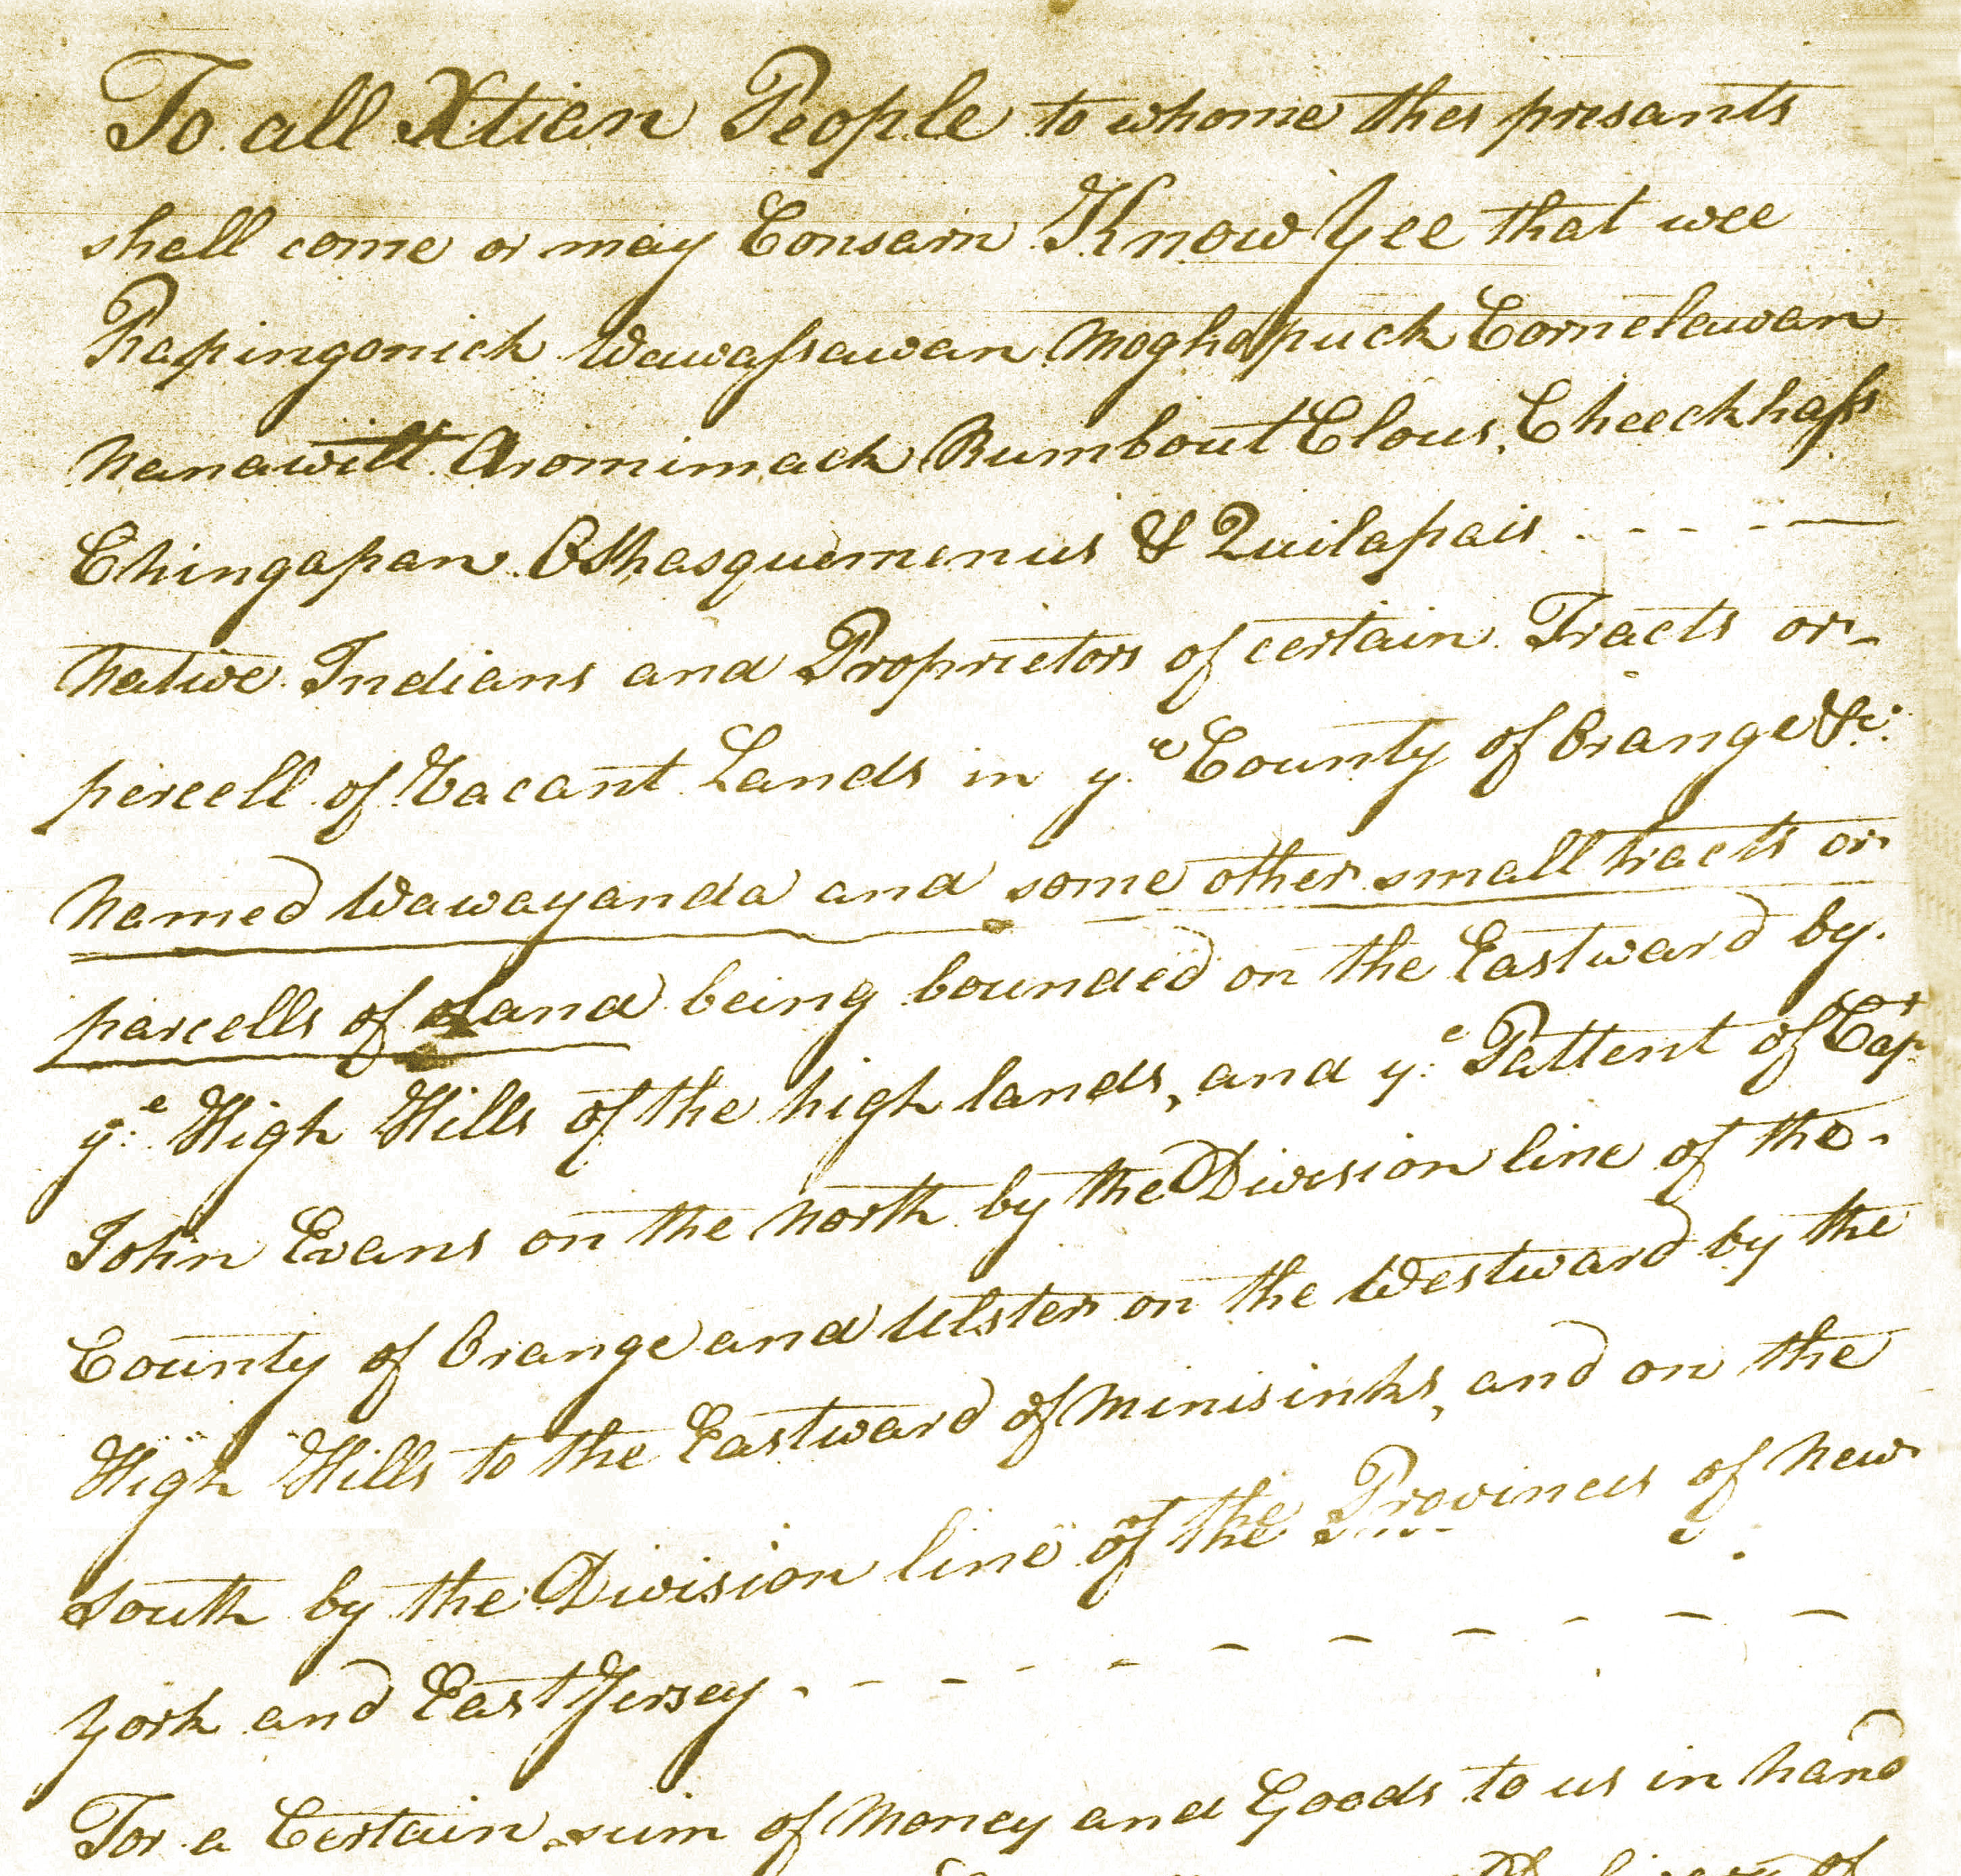 To all Xtian People to whome thes presants
shall come or may Consarn Know Yee that wee
Rapingonick Wawassawan Moghopuck Cornelawan
Nanawitt Aromimack Rumbout Clous, Cheeckhass
Chingapan Oshasquemenus & Quilapais
Native Indians and Proprietors of certain Tracts or
percell of Vacant Lands in ye County of Orange &c:
Named Wawayanda and some other small tracts or
parcells of Land being bounded on the Eastward by
ye High Hills of the high lands, and ye Pattent of Capt
John Evans on the North by the Division line of the
County of Orange and Ulster on the Westward by the
High Hills to the Eastward of Minisinks, and on the
South by the Division line of the Provinces of New
York and East Jersey
For a Certain sum of Money and Goods to us in hand